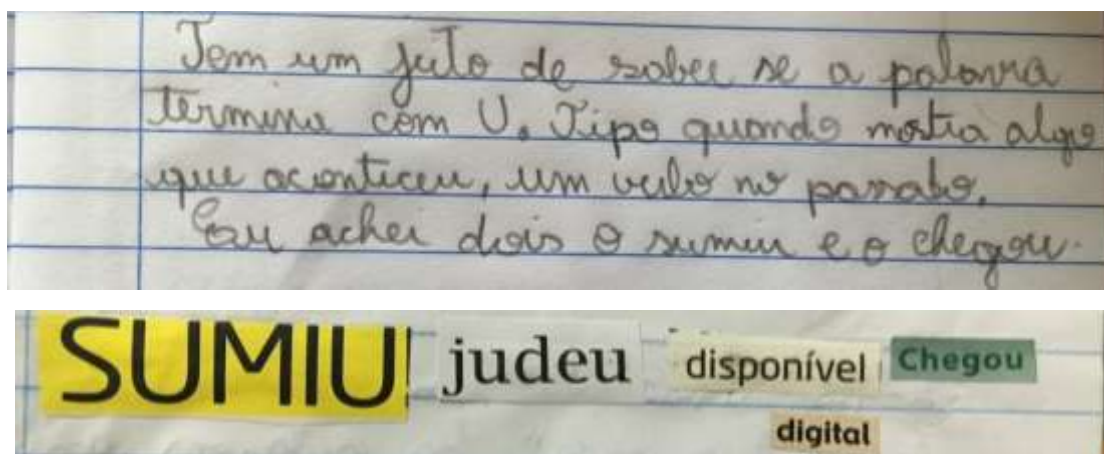 Tem um jeito de saber se a palavra
termina com U. Tipo quando mostra algo
que aconteceu, um verbo no passado.
Eu achei dois o sumiu e o chegou.
SUMIU! judeu disponível Chegou
digital